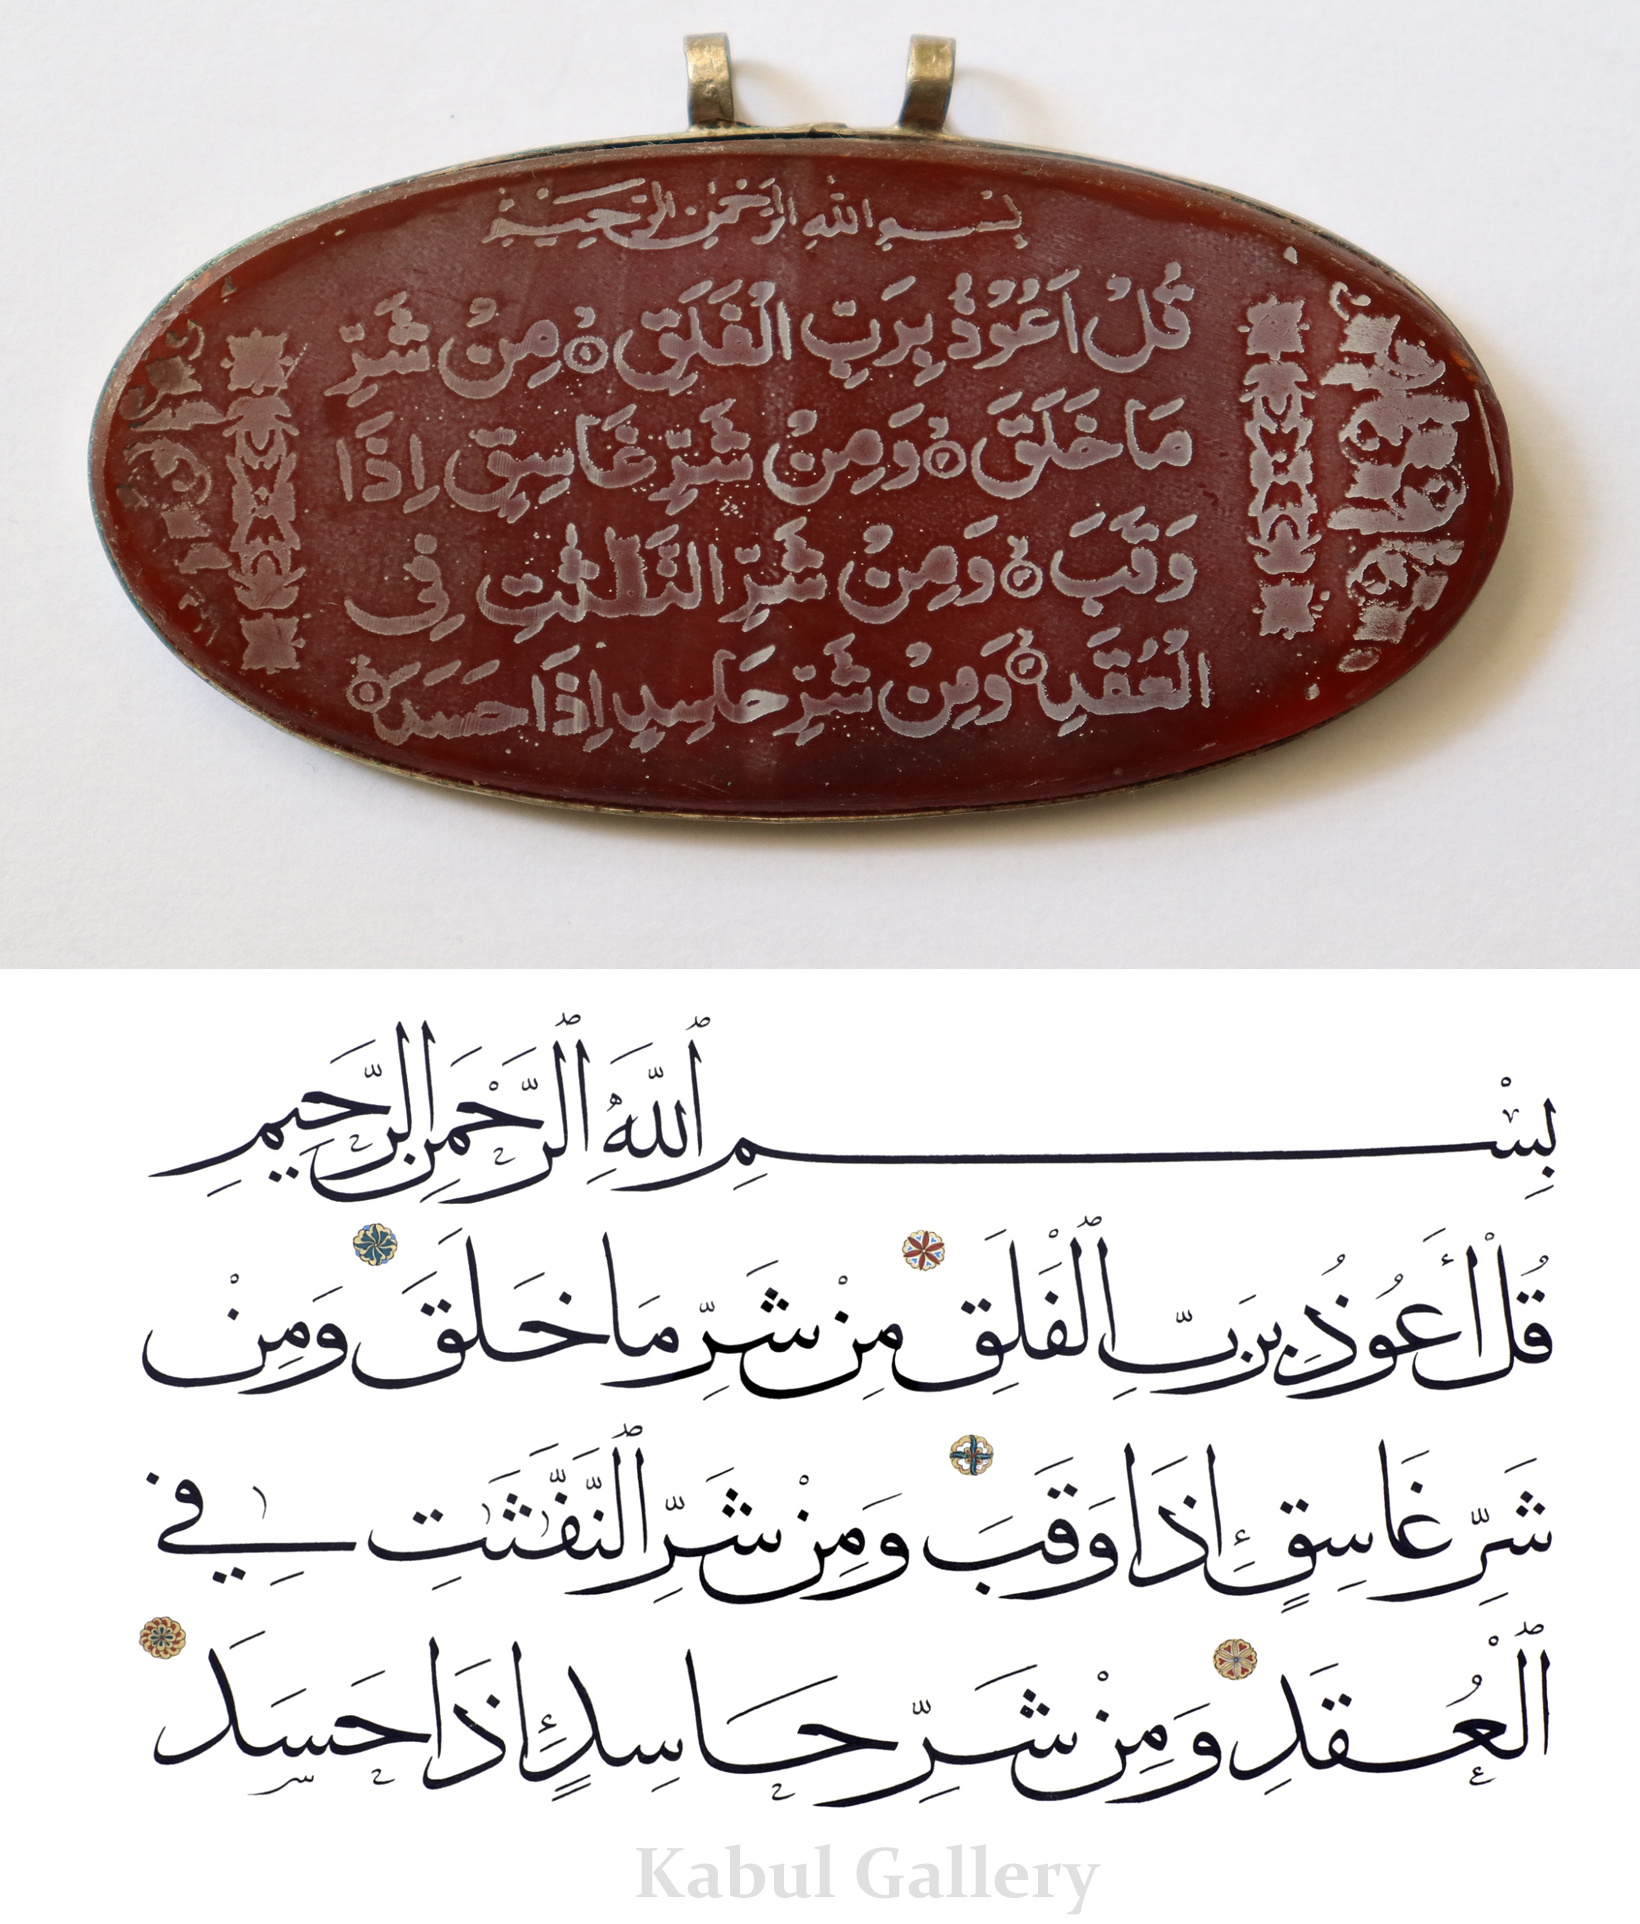 بسم الله الرحمن الرحيم
قُلْ اَعُوْذُ بِرَبِّ الْفَلَقِ ۝ مِنْ شَرِّ
مَا خَلَقَ ۝ وَمِنْ شَرِّ غَاسِقٍ اِذَا
وَقَبَ ۝ وَمِنْ شَرِّ النَّفّٰثٰتِ فِى
الْعُقَدِ ۝ وَمِنْ شَرِّ حَاسِدٍ اِذَا حَسَدَ ۝
بِسْمِ ٱللَّهِ ٱلرَّحْمَٰنِ ٱلرَّحِيمِ
قُلْ أَعُوذُ بِرَبِّ ٱلْفَلَقِ مِنْ شَرِّ مَا خَلَقَ وَمِنْ
شَرِّ غَاسِقٍ إِذَا وَقَبَ وَمِنْ شَرِّ ٱلنَّفَّٰثَٰتِ فِي
ٱلْعُقَدِ وَمِنْ شَرِّ حَاسِدٍ إِذَا حَسَدَ
Kabul Gallery